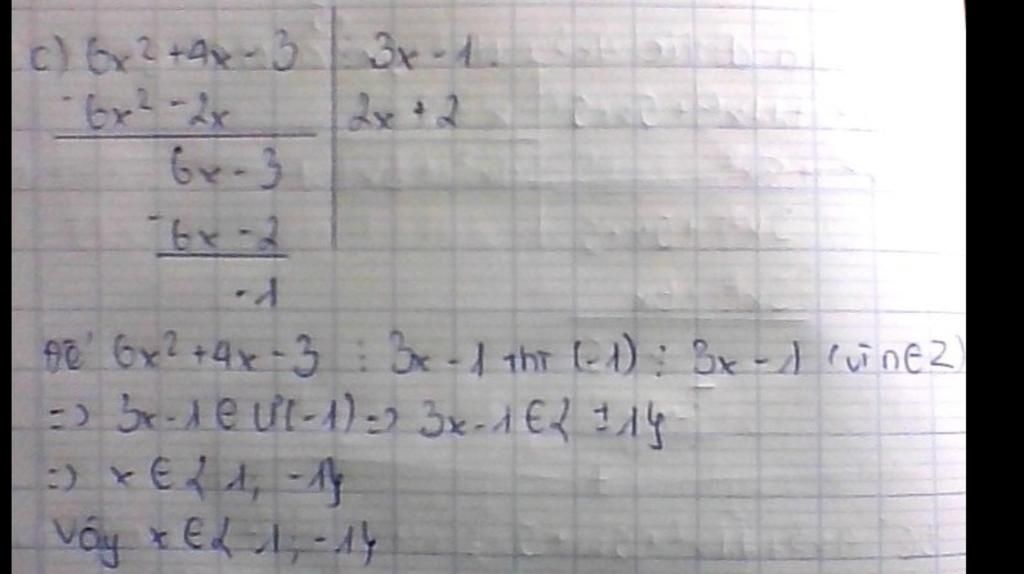 c) 6x² + 4x - 3 | 3x - 1.
- 6x² - 2x | 2x + 2
6x - 3
- 6x - 2
-1
Để 6x² + 4x - 3 ⋮ 3x - 1 thì (-1) ⋮ 3x - 1 (vì n ∈ Z)
=> 3x - 1 ∈ Ư(-1) => 3x - 1 ∈ { ±1}
=> x ∈ { 1, -1}
Vậy x ∈ { 1, -1}